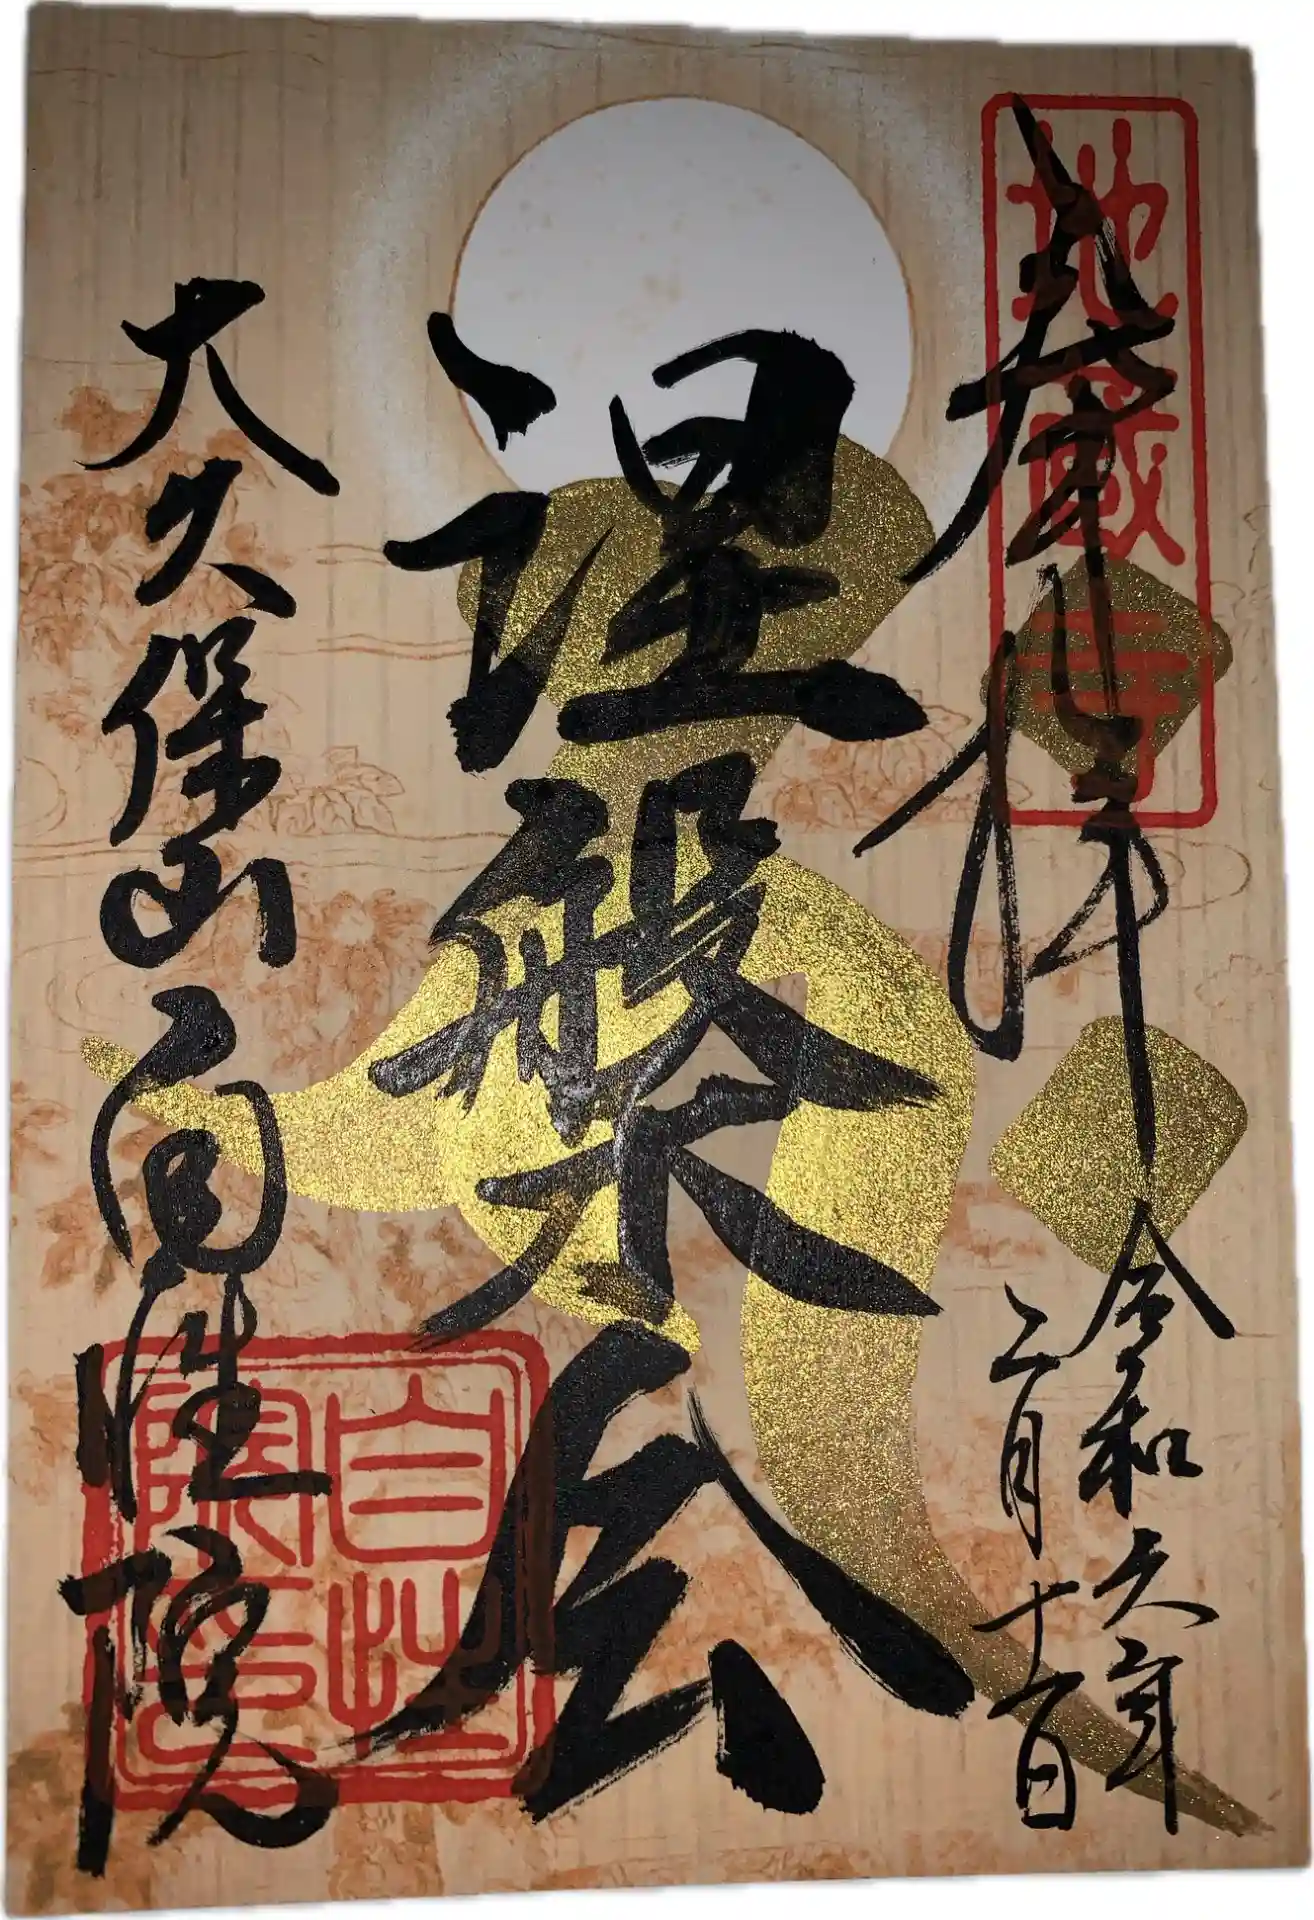 奉拝
地蔵寺
令和六年
二月十一日
涅槃会
大久保山自性院
自性
院印